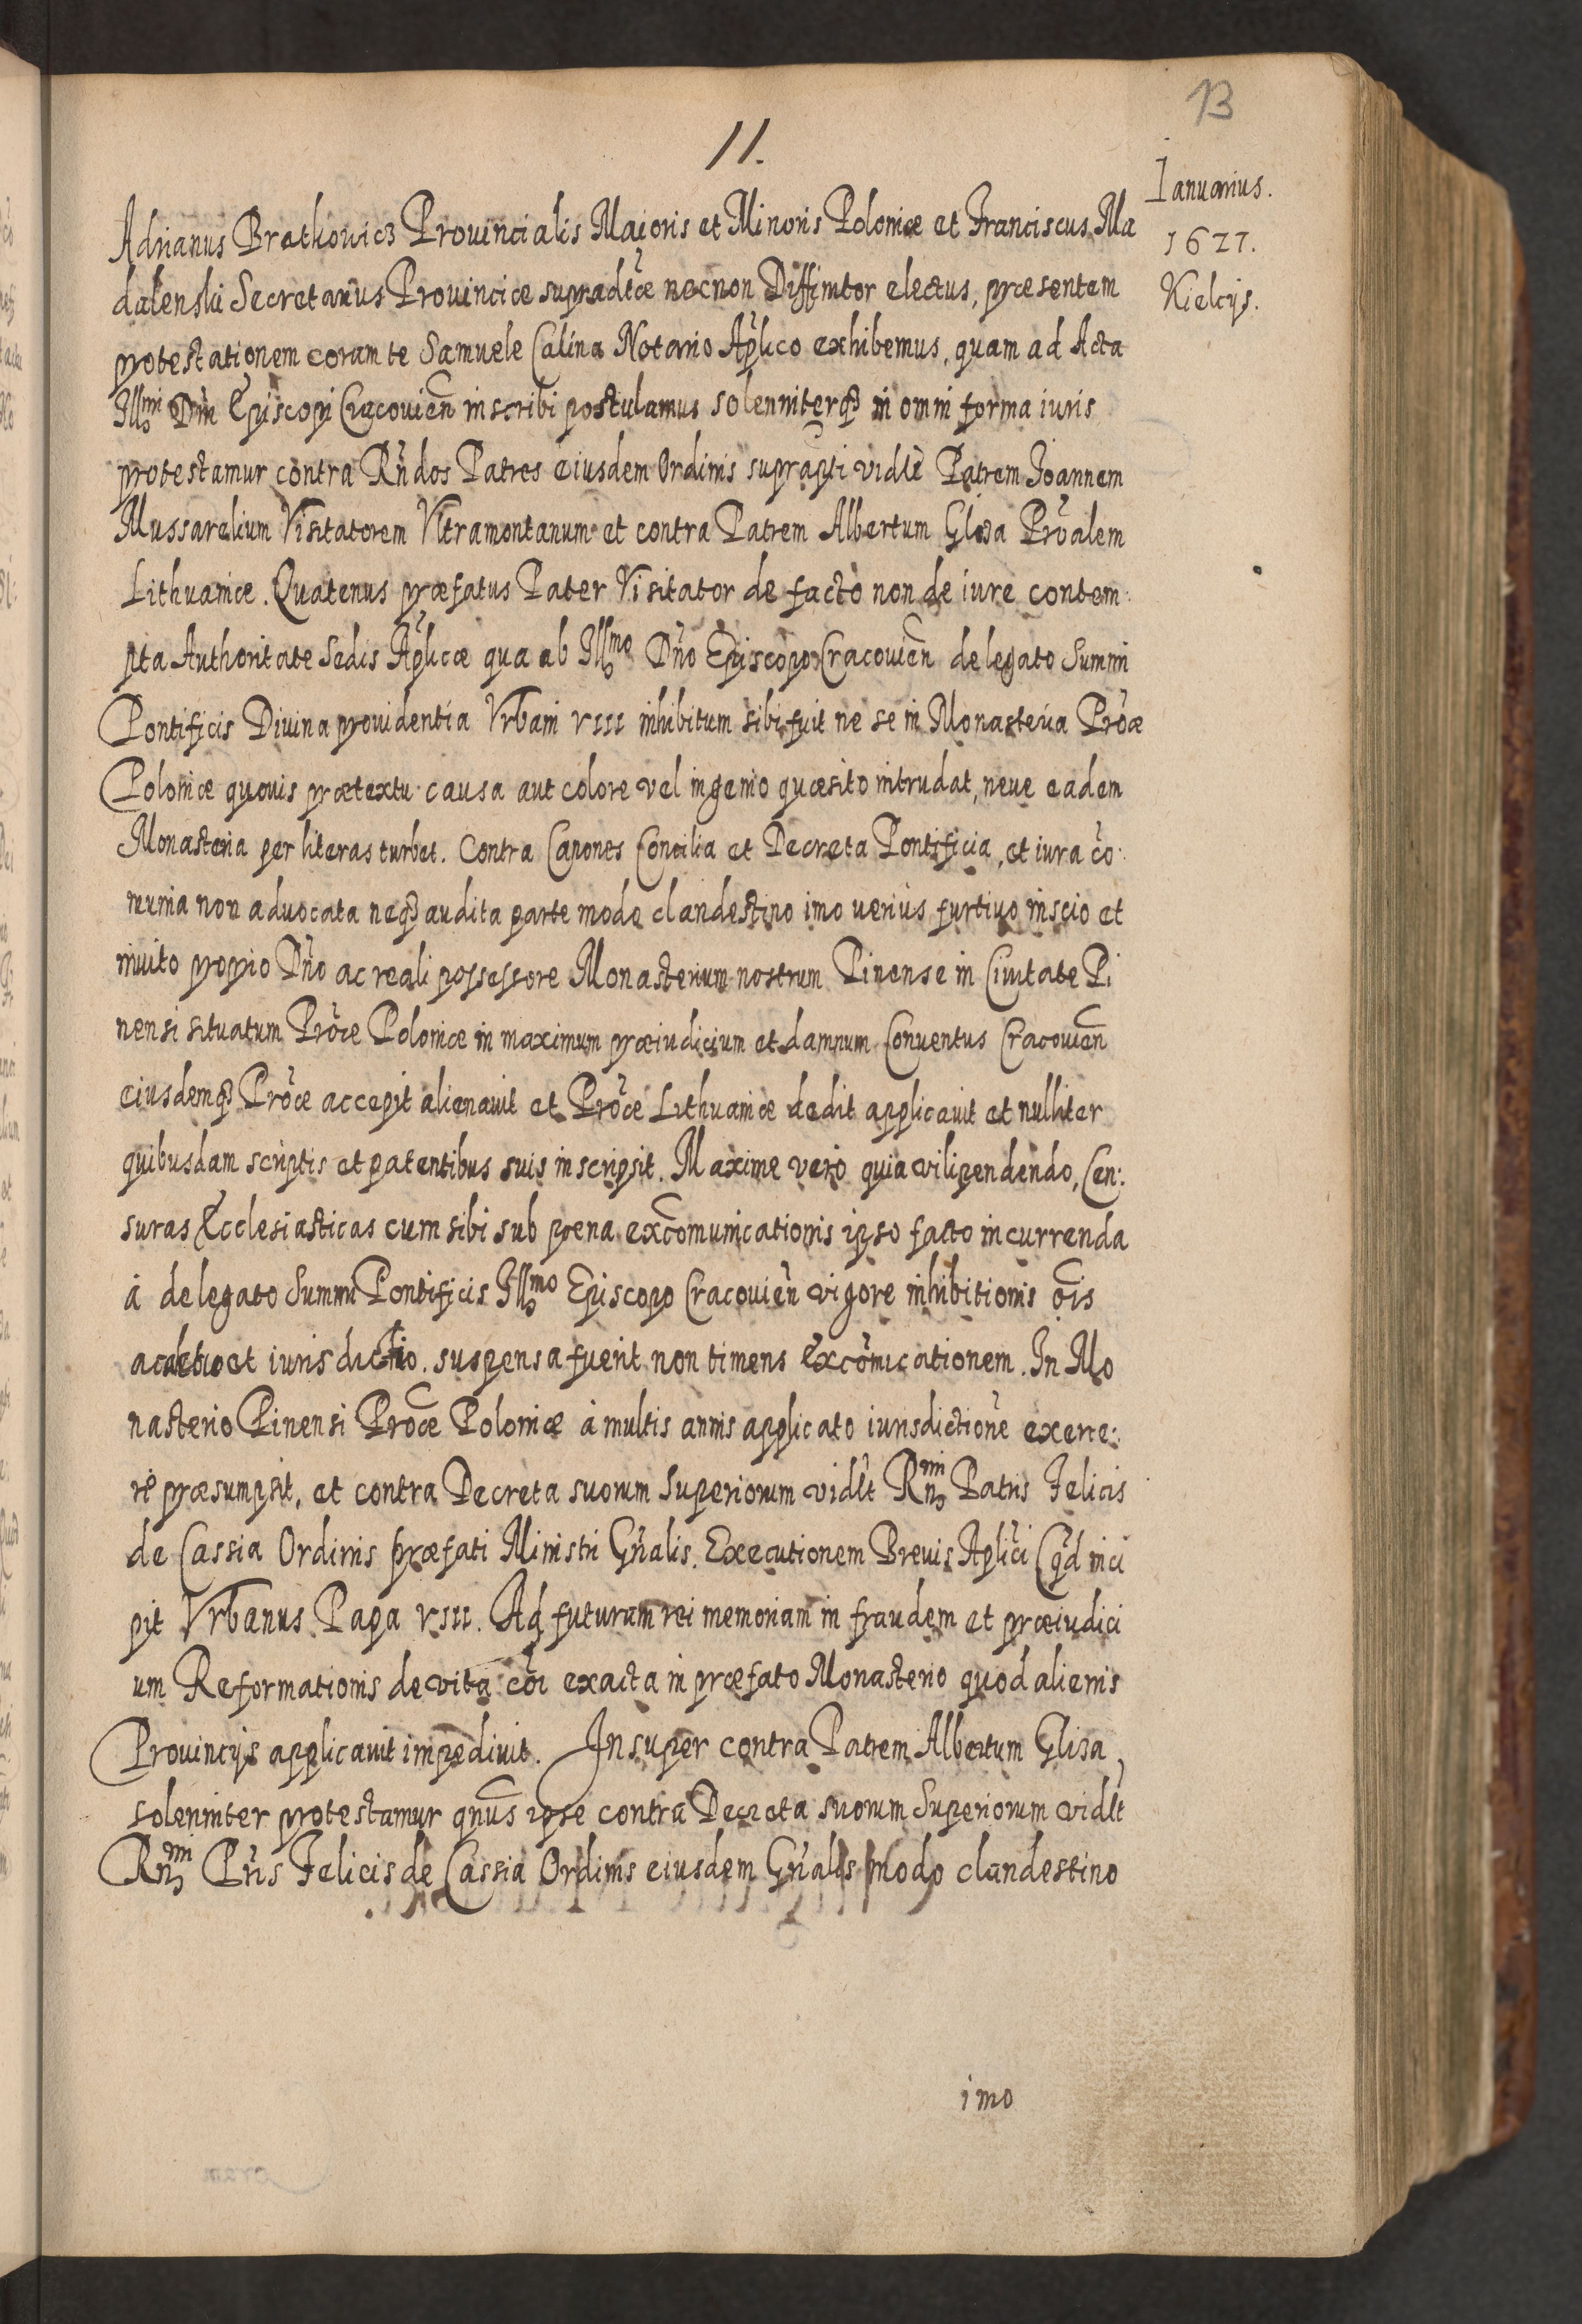 13
11.
Ianuarius.
1627.
Kielcijs.
Adrianus Bratkowicz Prouincialis Maioris et Minoris Poloniæ et Franciscus Ma
dalenski Secretarius Prouinciæ supradictæ necnon Diffinitor electus, præsentem
protestationem coram te Samuele Calina Notario Aplico exhibemus, quam ad Acta
Illmi Dni Episcopi Cracouien inscribi postulamus solenniterq3 in omni forma iuris
protestamur contra Rndos Patres eiusdem Ordinis suprapti vidlt Patrem Joannem
Mussarelium Visitatorem Vltramontanum et contra Patrem Albertum Gliza Proalem
Lithuaniæ. Quatenus præfatus Pater Visitator de facto non de iure contem:
pta Authoritate Sedis Aplicæ qua ab Illmo Dno Episcopo Cracouien delegato Summi
Pontificis Diuina prouidentia Vrbani VIII inhibitum sibi fuit ne se in Monasteria Proæ
Poloniæ quouis prætextu causa aut colore vel ingenio quæsito intrudat, neue eadem
Monasteria per literas turbet. Contra Canones Concilia et Decreta Pontificia, et iura cõ:
munia non aduocata neq3 audita parte modo clandestino imo uerius furtiuo inscio et
inuito proprio Dno ac reali possessore Monasterium nostrum Pinense in Ciuitate Pi
nensi situatum Proæ Poloniæ in maximum præiudicium et damnum Conuentus Cracouien
eiusdemq3 Proæ accepit alienauit et Proæ Lithuaniæ dedit applicauit et nulliter
quibusdam scriptis et patentibus suis inscripsit. Maxime vero quia vilipendendo, Cen:
suras Ecclesiasticas cum sibi sub poena excõmunicationis ipso facto incurrenda
à delegato Summi Pontificis Illmo Episcopo Cracouien vigore inhibitionis ois
actio et iurisdictio. suspensa fuerit non timens excõmicationem. In Mo
nasterio Pinensi Proæ Poloniæ à multis annis applicato iurisdictione exerce:
re præsumpsit, et contra Decreta suorum Superiorum vidlt Rnmi Patris Felicis
de Cassia Ordinis præfati Ministri Gñalis. Executionem Breuis Aplici Qd inci
pit Vrbanus Papa VIII. Ad futuram rei memoriam in fraudem et præiudici
um Reformationis de vita cõi exacta in præfato Monasterio quod alienis
Prouincijs applicauit impediuit. Insuper contra Patrem Albertum Gliza,
solenniter protestamur qnus ipse contra Decreta suorum Superiorum vidlt
Rnmi Pris Felicis de Cassia Ordinis eiusdem Gñalis modo clandestino
imo